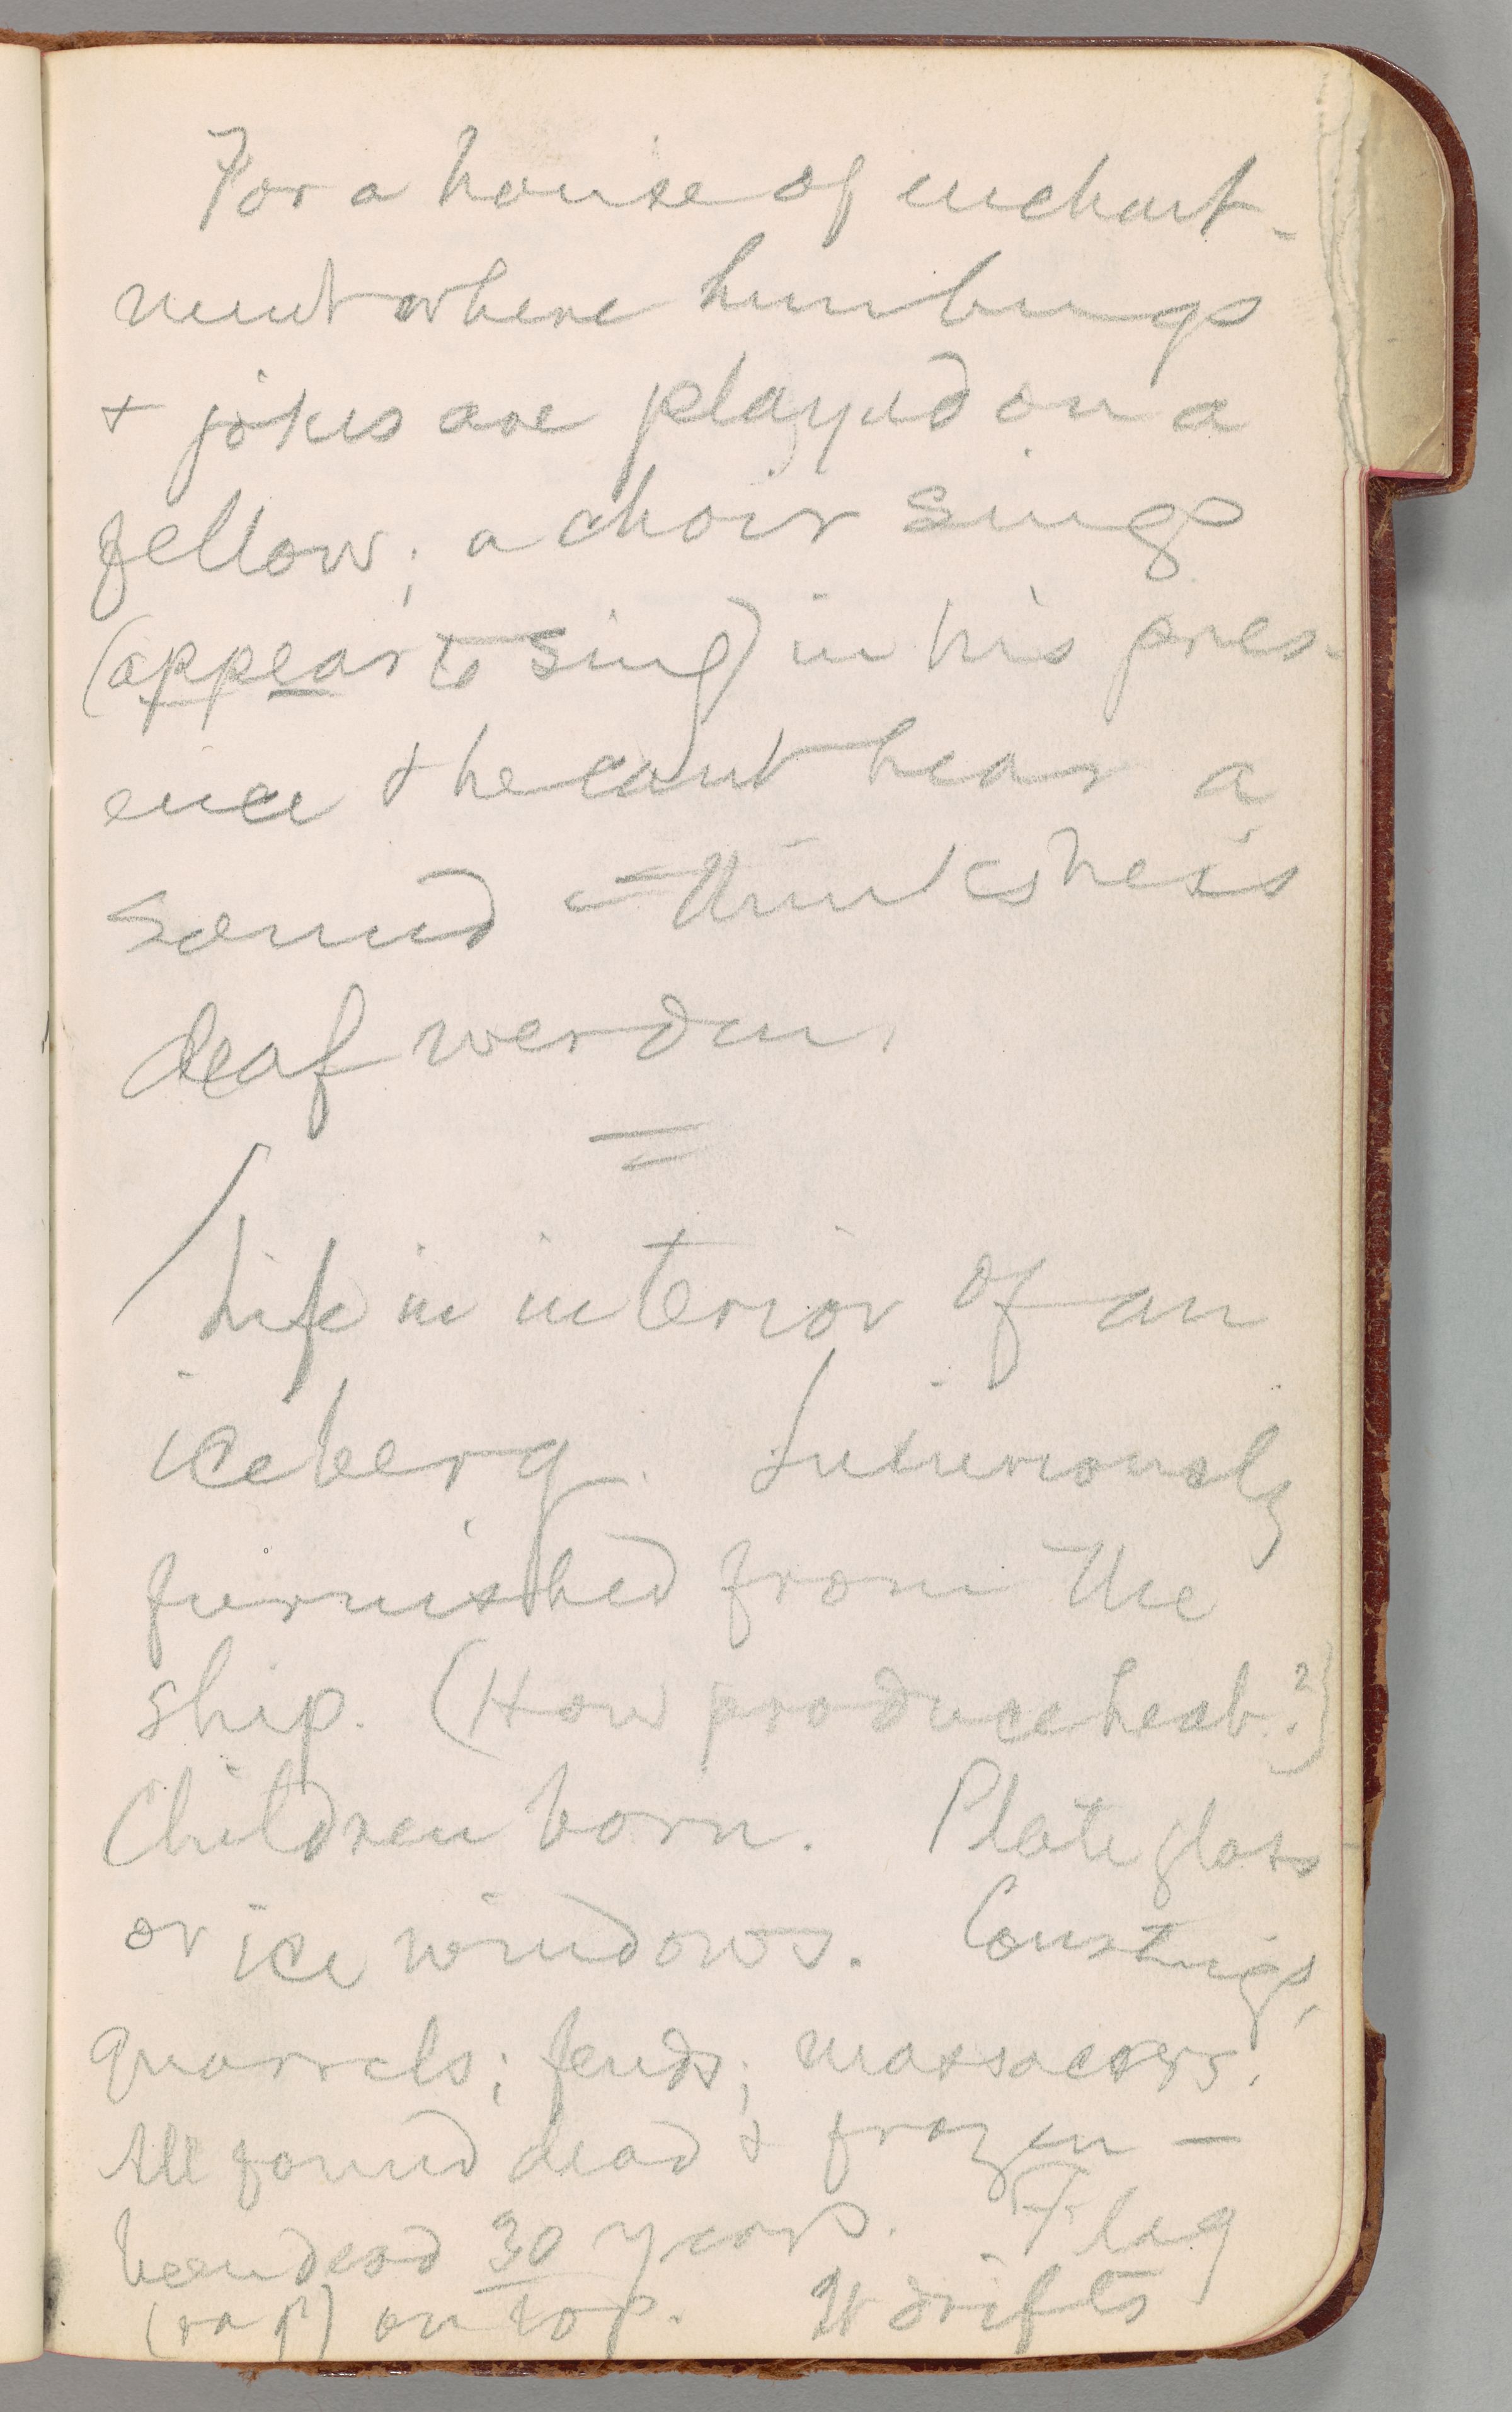 For a house of enchant-
ment where humbugs
+ jokes are played on a
fellow; a choir sings
(appear to sing) in his pres-
ence & he cant hear a
sound – thinks he is
deaf werden.
Life in interior of an
iceberg. Luxuriously
furnished from the
ship. (How produce heat?)
Children born. Plate glass
or ice windows. Courtings,
quarrels; feuds; massacres.
All found dead & frozen —
been dead 30 years. Flag
(rag) on top. It drifts